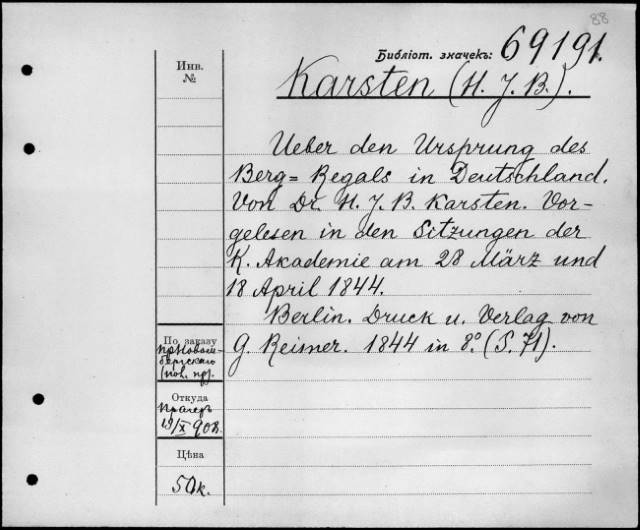 88
Библіот. значекъ: 69191.
Инв.
№
Karsten (H. J. B.).
Ueber den Ursprung des
Berg= Regals in Deutschland.
Von Dr. H. J. B. Karsten. Vor-
gelesen in den Sitzungen der
K. Akademie am 28 März und
18 April 1844.
Berlin. Druck u. Verlag von
G. Reimer. 1844 in 8° (S. 71).
По заказу
(пов. пр).
Откуда
Прагеръ
Цѣна
50 к.